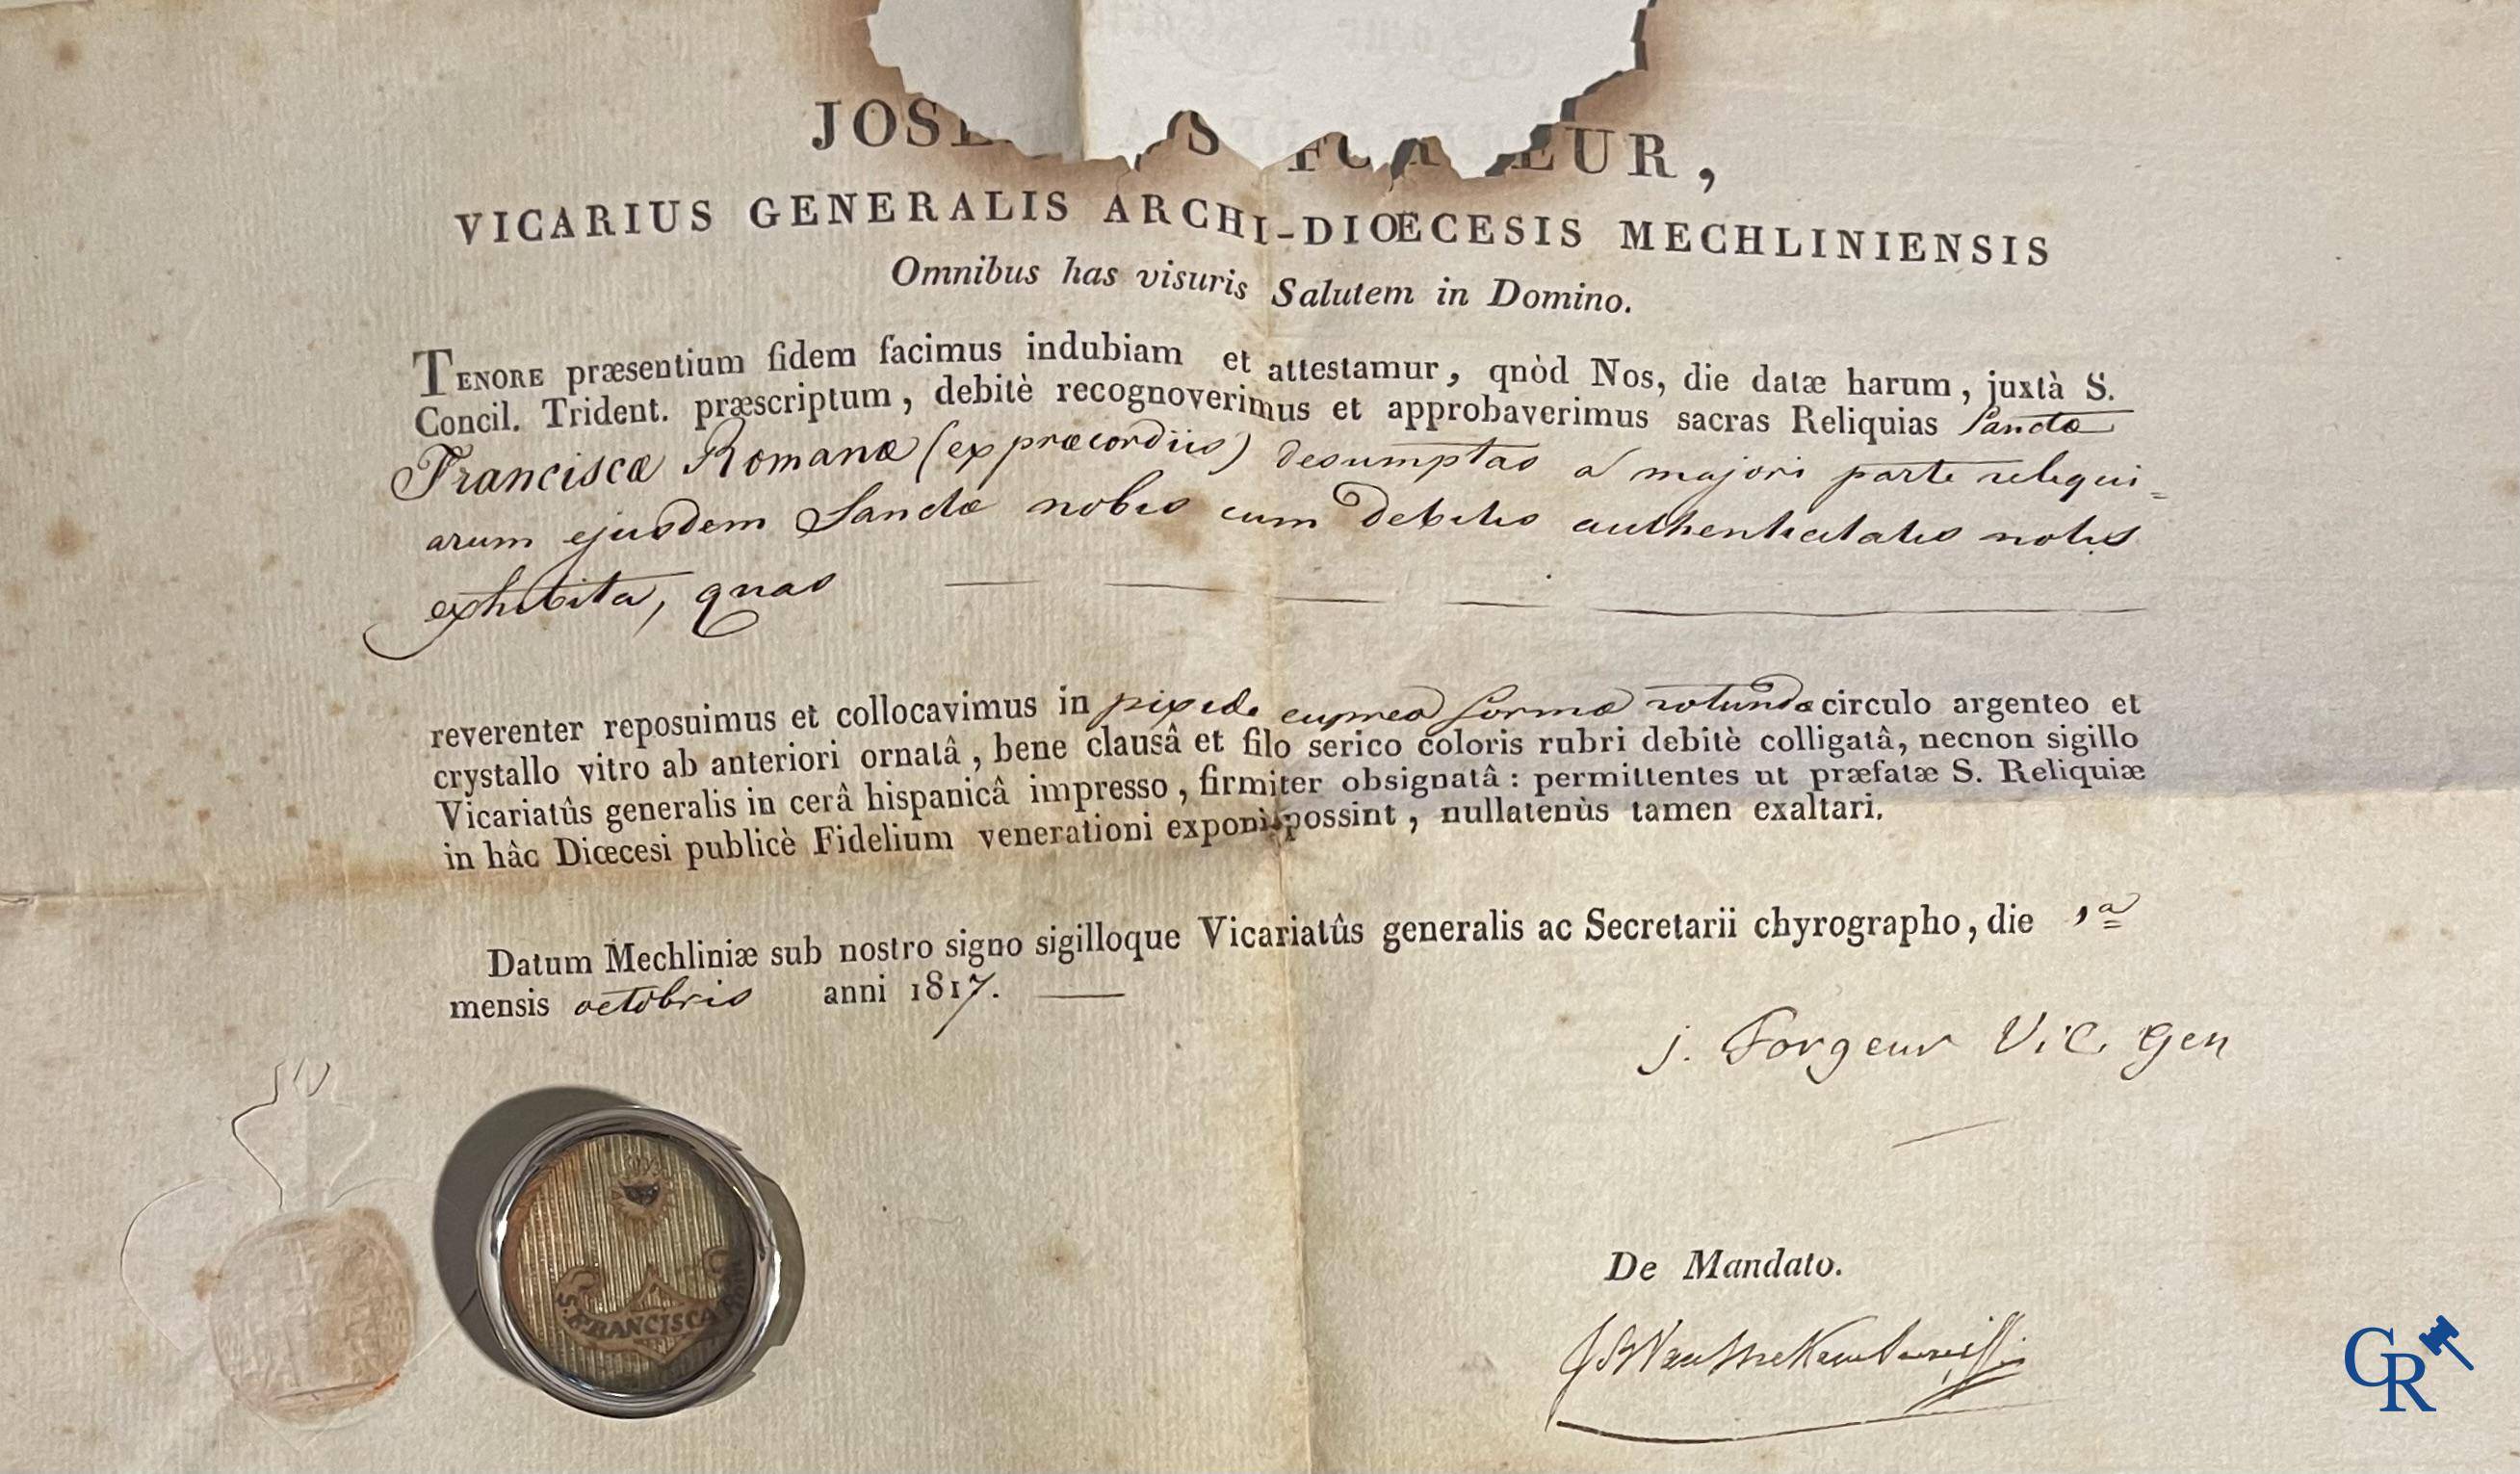 JOS S F EUR,
VICARIUS GENERALIS ARCHI-DIŒCESIS MECHLINIENSIS
Omnibus has visuris Salutem in Domino.
TENORE præsentium fidem facimus indubiam et attestamur, qnòd Nos, die datæ harum, juxtà S.
Concil. Trident. præscriptum, debitè recognoverimus et approbaverimus sacras Reliquias Sanctæ
Franciscæ Romanæ (ex præcordiis) desumptas a majori parte reliqui=
arum ejusdem Sanctæ nobis cum debitis authenticitatis notis
exhibita, quas
reverenter reposuimus et collocavimus in pixide cuprea formæ rotundæ circulo argenteo et
crystallo vitro ab anteriori ornatâ, bene clausâ et filo serico coloris rubri debitè colligatâ, necnon sigillo
Vicariatûs generalis in cerâ hispanicâ impresso, firmiter obsignatâ: permittentes ut præfatæ S. Reliquiæ
in hâc Diœcesi publicè Fidelium venerationi exponi possint, nullatenùs tamen exaltari.
Datum Mechliniæ sub nostro signo sigilloque Vicariatûs generalis ac Secretarii chyrographo, die 1a
mensis octobris anni 1817.
j. Forgeur Vic. Gen
S. FRANCISCA ROM
De Mandato.
GR